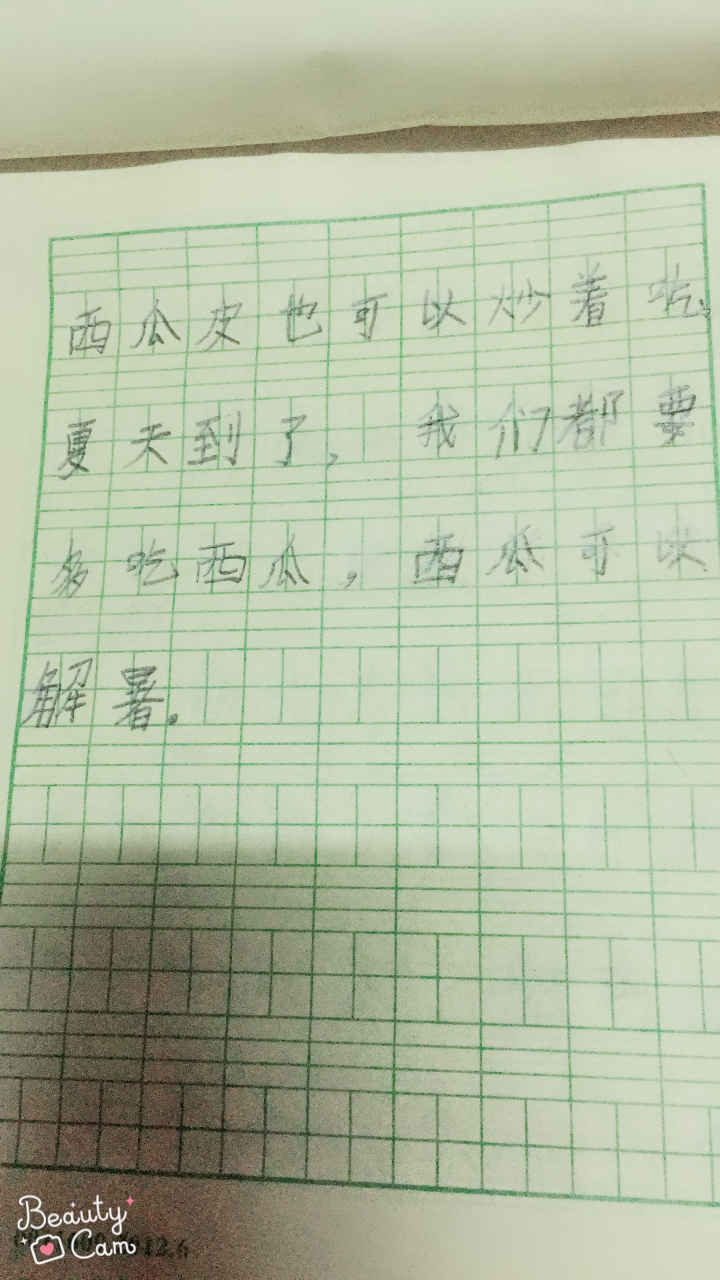 西瓜皮也可以炒着吃。
夏天到了，我们都要
多吃西瓜，西瓜可以
解暑.
Beauty
Cam